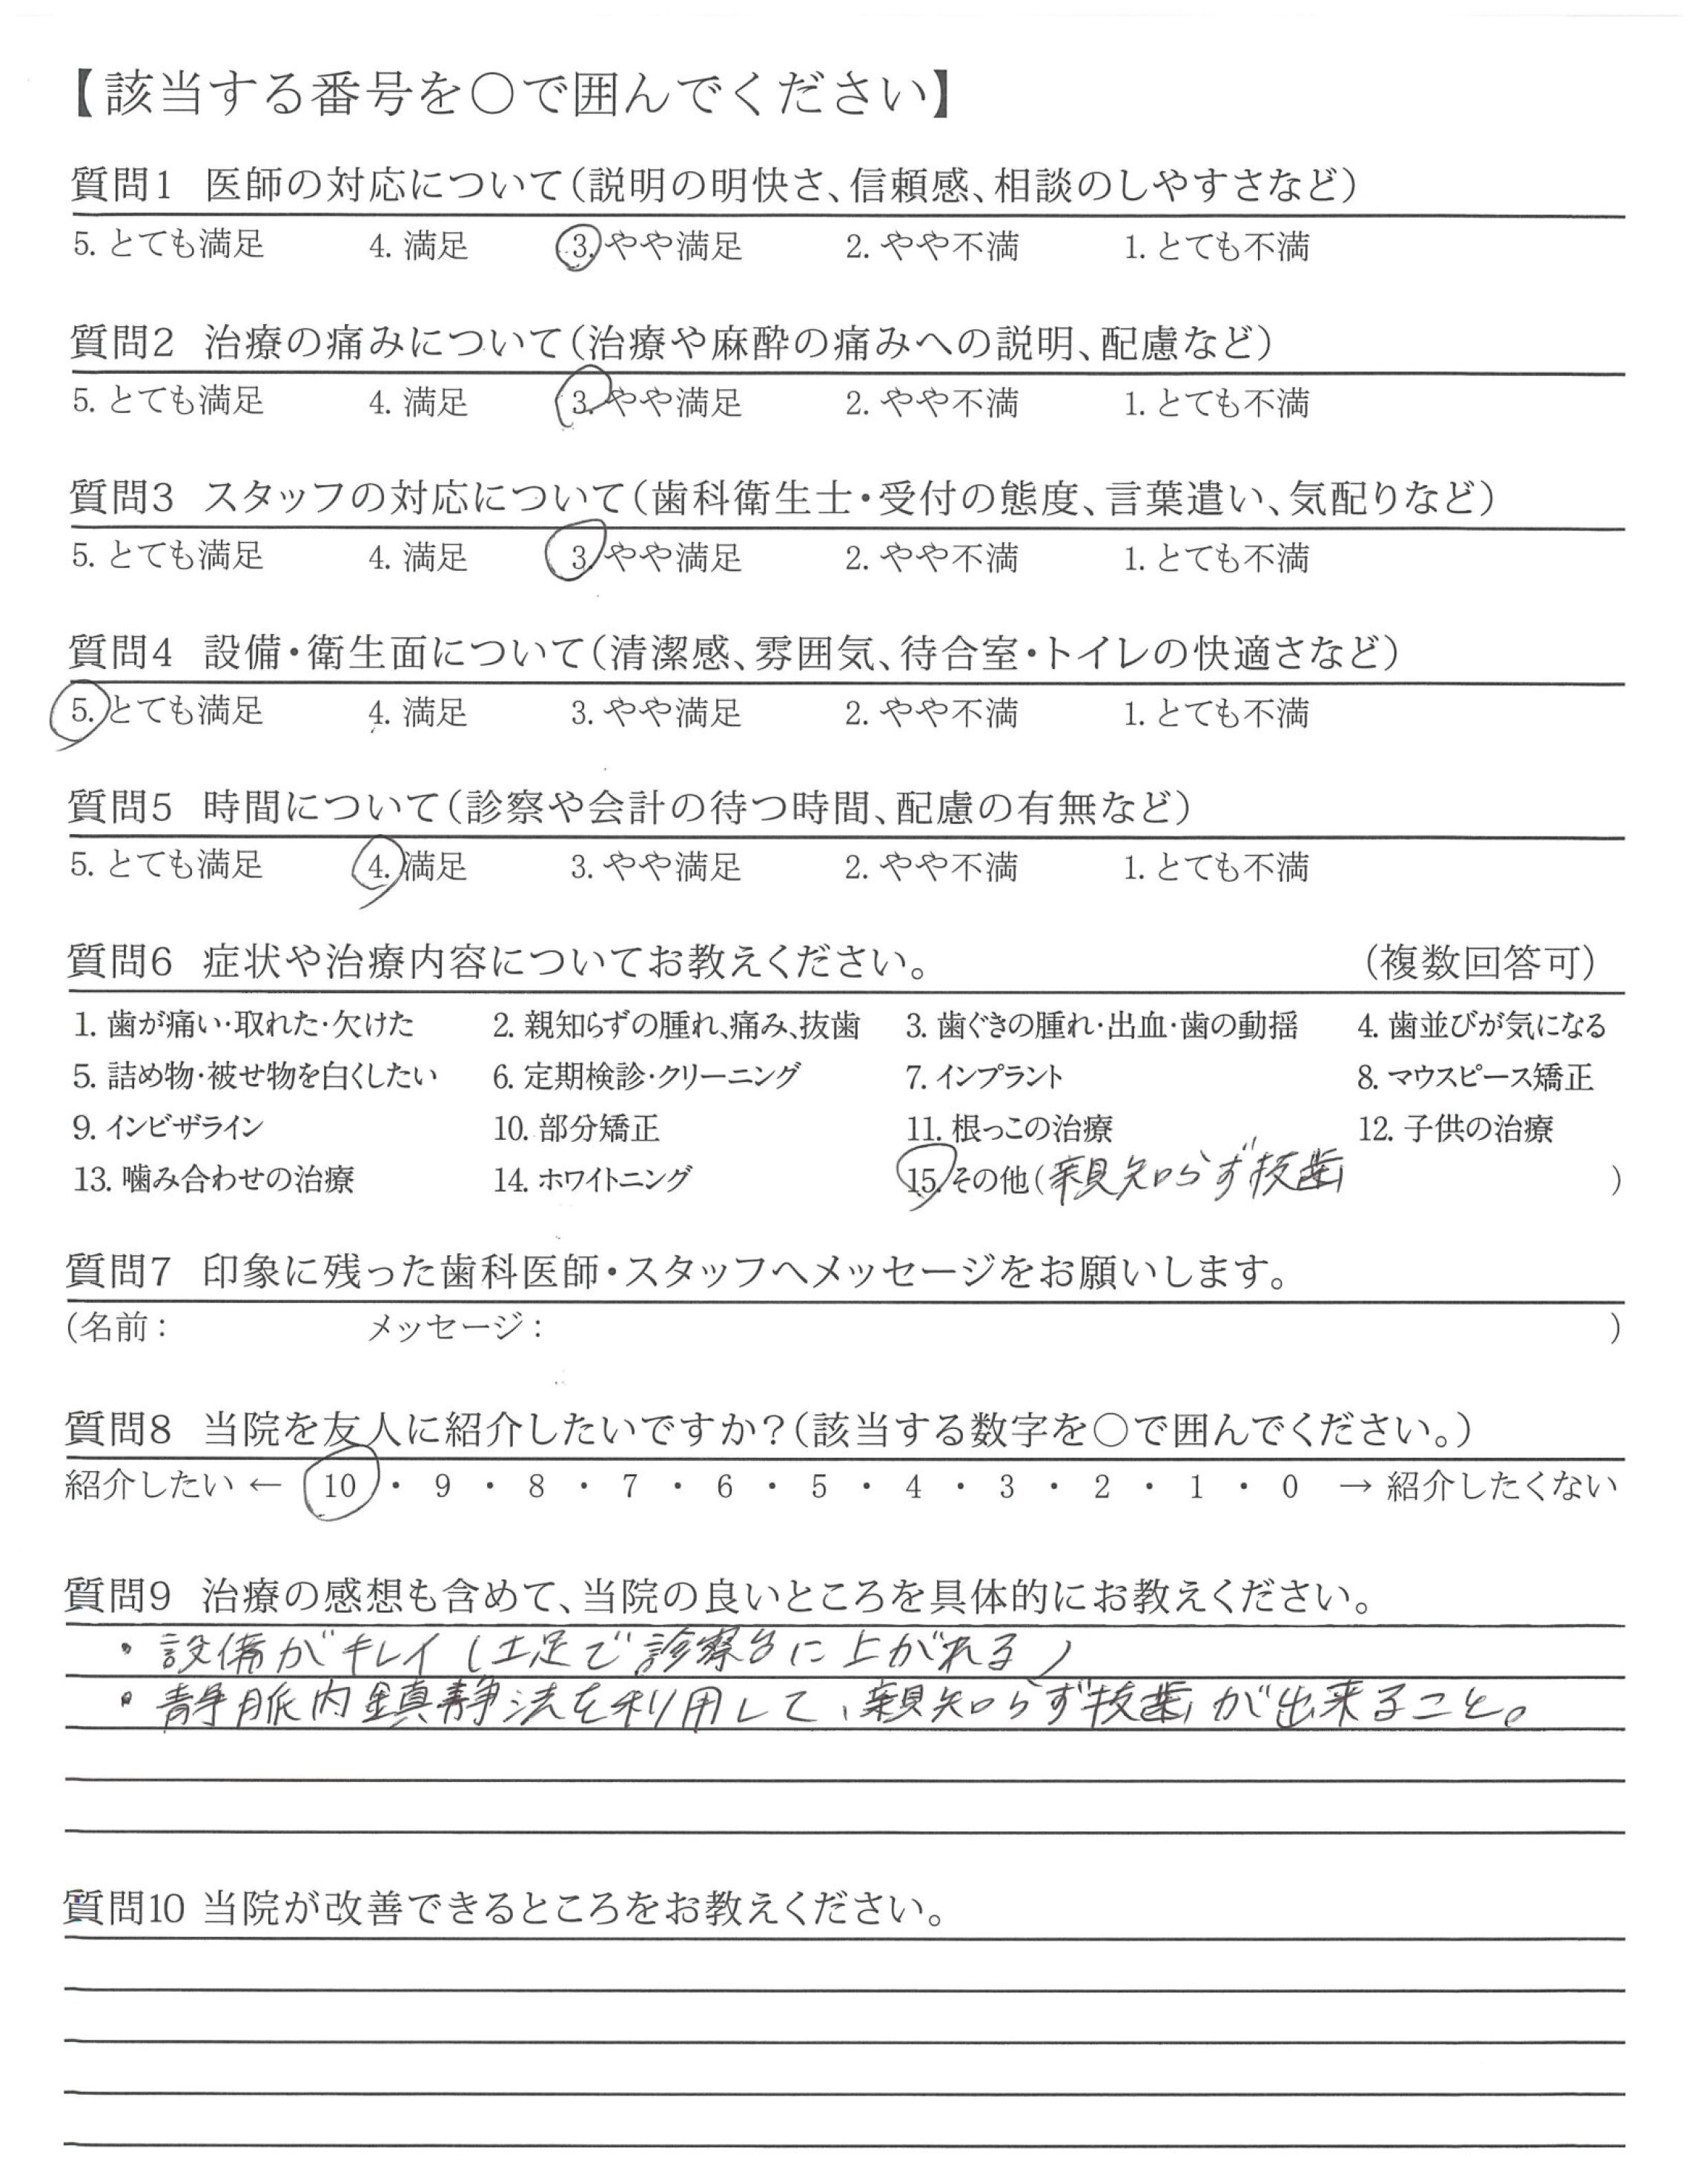 【該当する番号を○で囲んでください】
質問1 医師の対応について(説明の明快さ、信頼感、相談のしやすさなど)
5. とても満足 4. 満足 3. やや満足 2. やや不満 1. とても不満
質問2 治療の痛みについて(治療や麻酔の痛みへの説明、配慮など)
5. とても満足 4. 満足 3. やや満足 2. やや不満 1. とても不満
質問3 スタッフの対応について(歯科衛生士・受付の態度、言葉遣い、気配りなど)
5. とても満足 4. 満足 3. やや満足 2. やや不満 1. とても不満
質問4 設備・衛生面について(清潔感、雰囲気、待合室・トイレの快適さなど)
5. とても満足 4. 満足 3. やや満足 2. やや不満 1. とても不満
質問5 時間について(診察や会計の待つ時間、配慮の有無など)
5. とても満足 4. 満足 3. やや満足 2. やや不満 1. とても不満
質問6 症状や治療内容についてお教えください。 (複数回答可)
1. 歯が痛い・取れた・欠けた 2. 親知らずの腫れ、痛み、抜歯 3. 歯ぐきの腫れ・出血・歯の動揺 4. 歯並びが気になる
5. 詰め物・被せ物を白くしたい 6. 定期検診・クリーニング 7. インプラント 8. マウスピース矯正
9. インビザライン 10. 部分矯正 11. 根っこの治療 12. 子供の治療
13. 噛み合わせの治療 14. ホワイトニング 15. その他(親知らず抜歯 )
質問7 印象に残った歯科医師・スタッフへメッセージをお願いします。
(名前: メッセージ: )
質問8 当院を友人に紹介したいですか?(該当する数字を○で囲んでください。)
紹介したい ← 10 ・ 9 ・ 8 ・ 7 ・ 6 ・ 5 ・ 4 ・ 3 ・ 2 ・ 1 ・ 0 → 紹介したくない
質問9 治療の感想も含めて、当院の良いところを具体的にお教えください。
・設備がキレイ(土足で診察台に上がれる)
・静脈内鎮静法を利用して、親知らず抜歯が出来ること。
質問10 当院が改善できるところをお教えください。